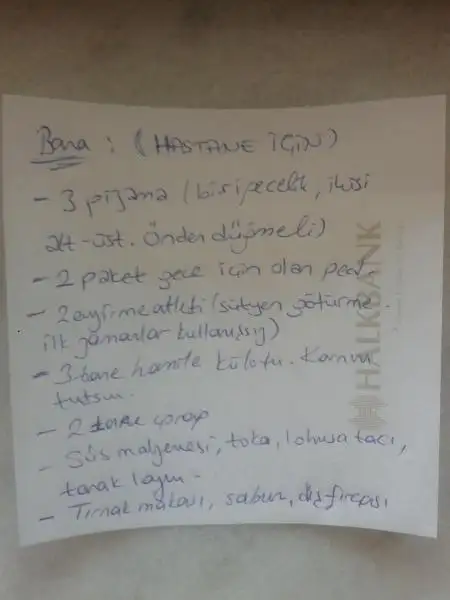 Bana : (HASTANE İÇİN)
- 3 pijama (biri gecelik, ikisi
alt-üst. Önden düğmeli)
- 2 paket gece için olan ped.
- 2 emzirme atleti (sütyen götürme.
ilk zamanlar kullanışsız)
- 3 tane hamile külotu. Karnını
tutsun.
- 2 tane çorap
- Süs malzemesi, toka, lohusa tacı,
tarak lazım.
- Tırnak makası, sabun, diş fırçası
HALKBANK